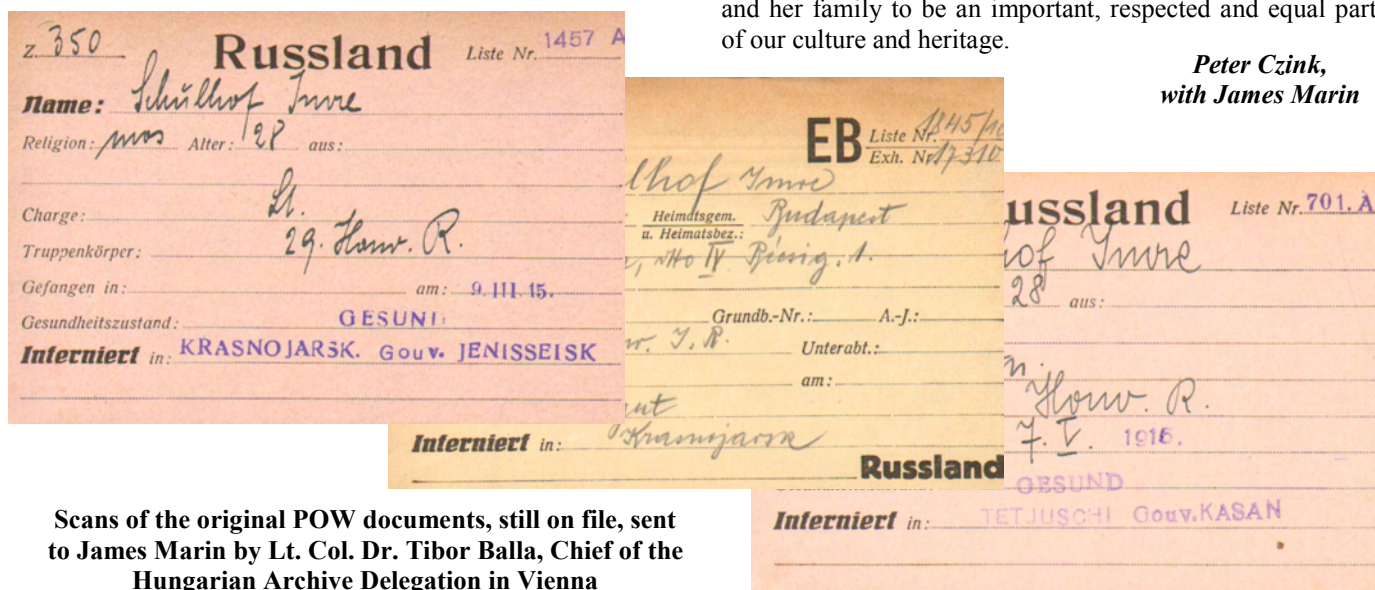 and her family to be an important, respected and equal part
of our culture and heritage.
Peter Czink,
with James Marin
z. 350 Russland Liste Nr. 1457 A
Name: Schulhof Imre
Religion: mos Alter: 28 aus:
Charge: Lt.
Truppenkörper: 29. Honv. R.
Gefangen in: am: 9.III.15.
Gesundheitszustand: GESUND
Interniert in: KRASNOJARSK. Gouv. JENISSEISK
EB Liste Nr. 1845/10
Exh. Nr. 17310
lhof Imre
Heimatsgem. Budapest
u. Heimatsbez.:
IV 1.
Grundb.-Nr.: A.-J.:
I. R. Unterabt.:
am:
gut
Interniert in: Krasnojarsk
Russland
ussland Liste Nr. 701.A
of Imre
28 aus:
Honv. R.
7. V. 1915.
GESUND
Interniert in: TETJUSCHI Gouv.KASAN
Scans of the original POW documents, still on file, sent
to James Marin by Lt. Col. Dr. Tibor Balla, Chief of the
Hungarian Archive Delegation in Vienna